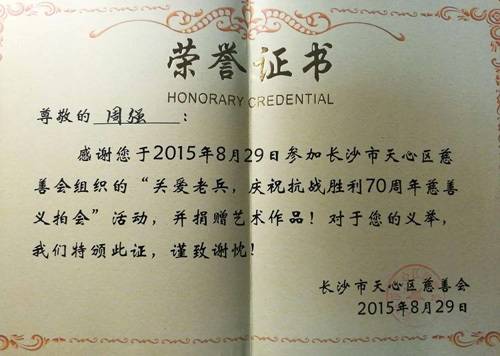 荣誉证书
HONORARY CREDENTIAL
尊敬的 周强 :
感谢您于2015年8月29日参加长沙市天心区慈
善会组织的“关爱老兵，庆祝抗战胜利70周年慈善
义拍会”活动，并捐赠艺术作品！对于您的义举，
我们特颁此证，谨致谢忱！
长沙市天心区慈善会
2015年8月29日